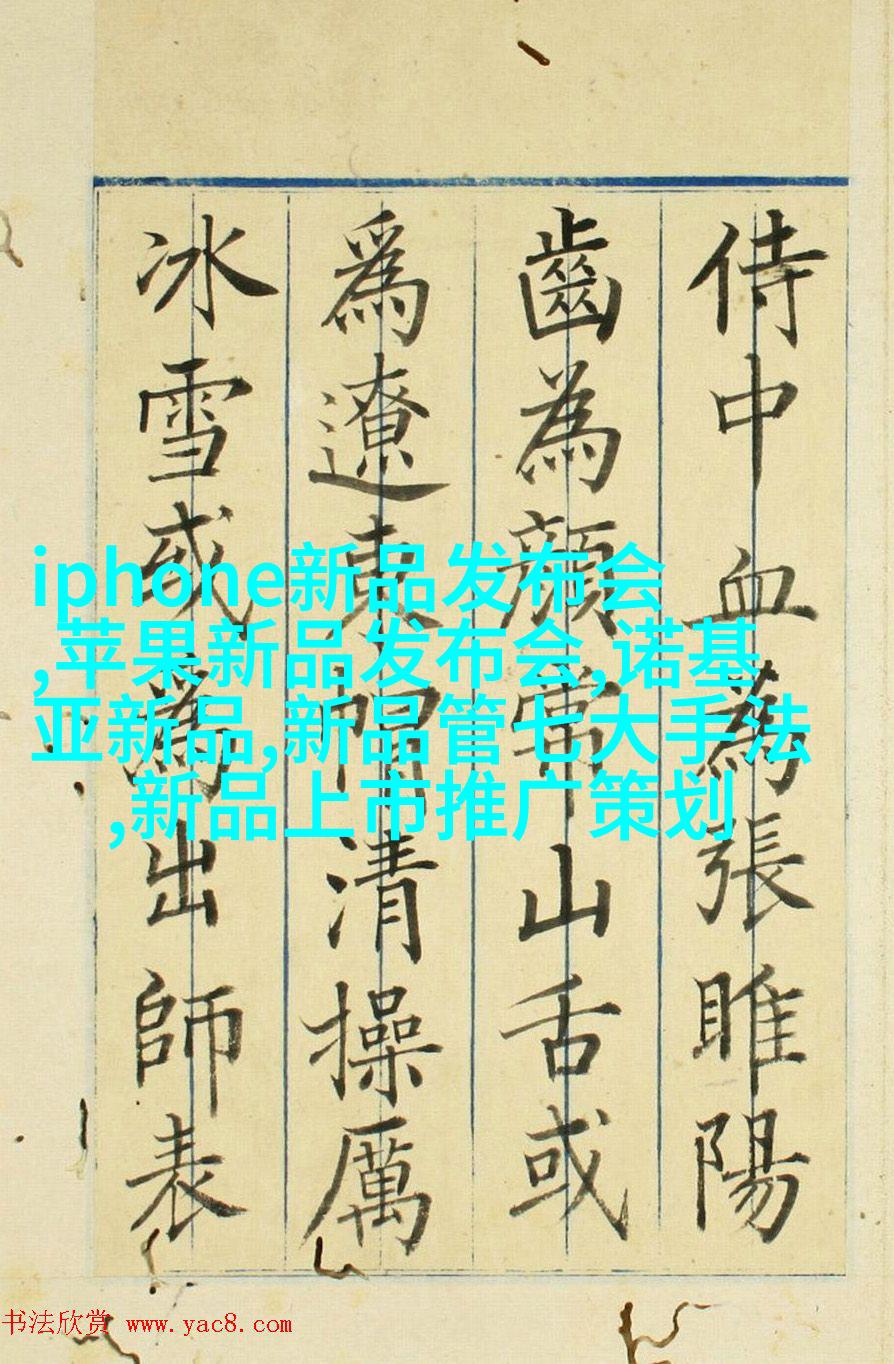 侍中血為張睢陽
齒為顏常山舌或
爲遼東帽清操厲
冰雪或為出師表
iphone新品发布会
,苹果新品发布会,诺基
亚新品,新品管七大手法
,新品上市推广策划
书法欣赏 www.yac8.com